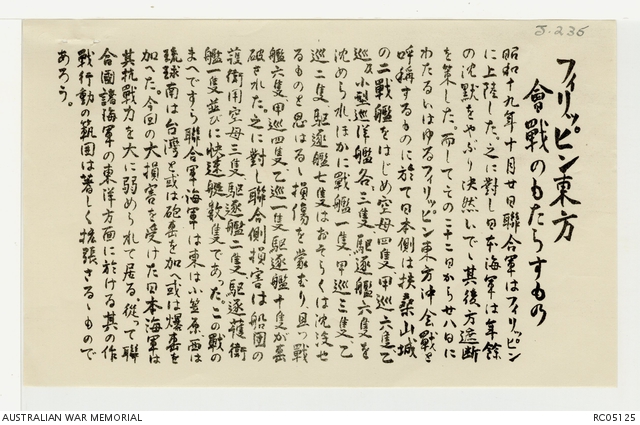 J-235
フィリッピン東方
會戰のもたらすもの
昭和十九年十月廿日聯合軍はフィリッピン
に上陸した。之に對し日本海軍は年餘
の沈默をやぶり決然いでし其後方遮断
を策した。而してその二十二日から廿八日に
わたるいはゆるフィリッピン東方沖会戰と
呼稱するものに於て日本側は扶桑山城
の二戰艦をはじめ空母四隻甲巡六隻乙
巡及小型巡洋艦各三隻駆逐艦六隻を
沈められ、ほかに戰艦一隻甲巡三隻乙
巡二隻駆逐艦七隻はおそらくは沈没せ
るものと思はるゝ損傷を蒙むり且つ戰
艦六隻甲巡四隻乙巡一隻駆逐艦十隻が
破された。之に對し聯合側損害は船團の
護衛用空母三隻駆逐艦二隻駆逐護衛
艦一隻並びに快速艇数隻であった。この戰の
まへですら聯合軍海軍は東は小笠原西は
琉球南は台湾を或は砲撃を加へ或は爆撃を
加へた。今回の大損害を受けた日本海軍は
其抗戰力を大に弱められて居る。從って聯
合國諸海軍の東洋方面に於ける其の作
戰行動の範囲は著しく拡張さるゝもので
あろう。
AUSTRALIAN WAR MEMORIAL
RC05125